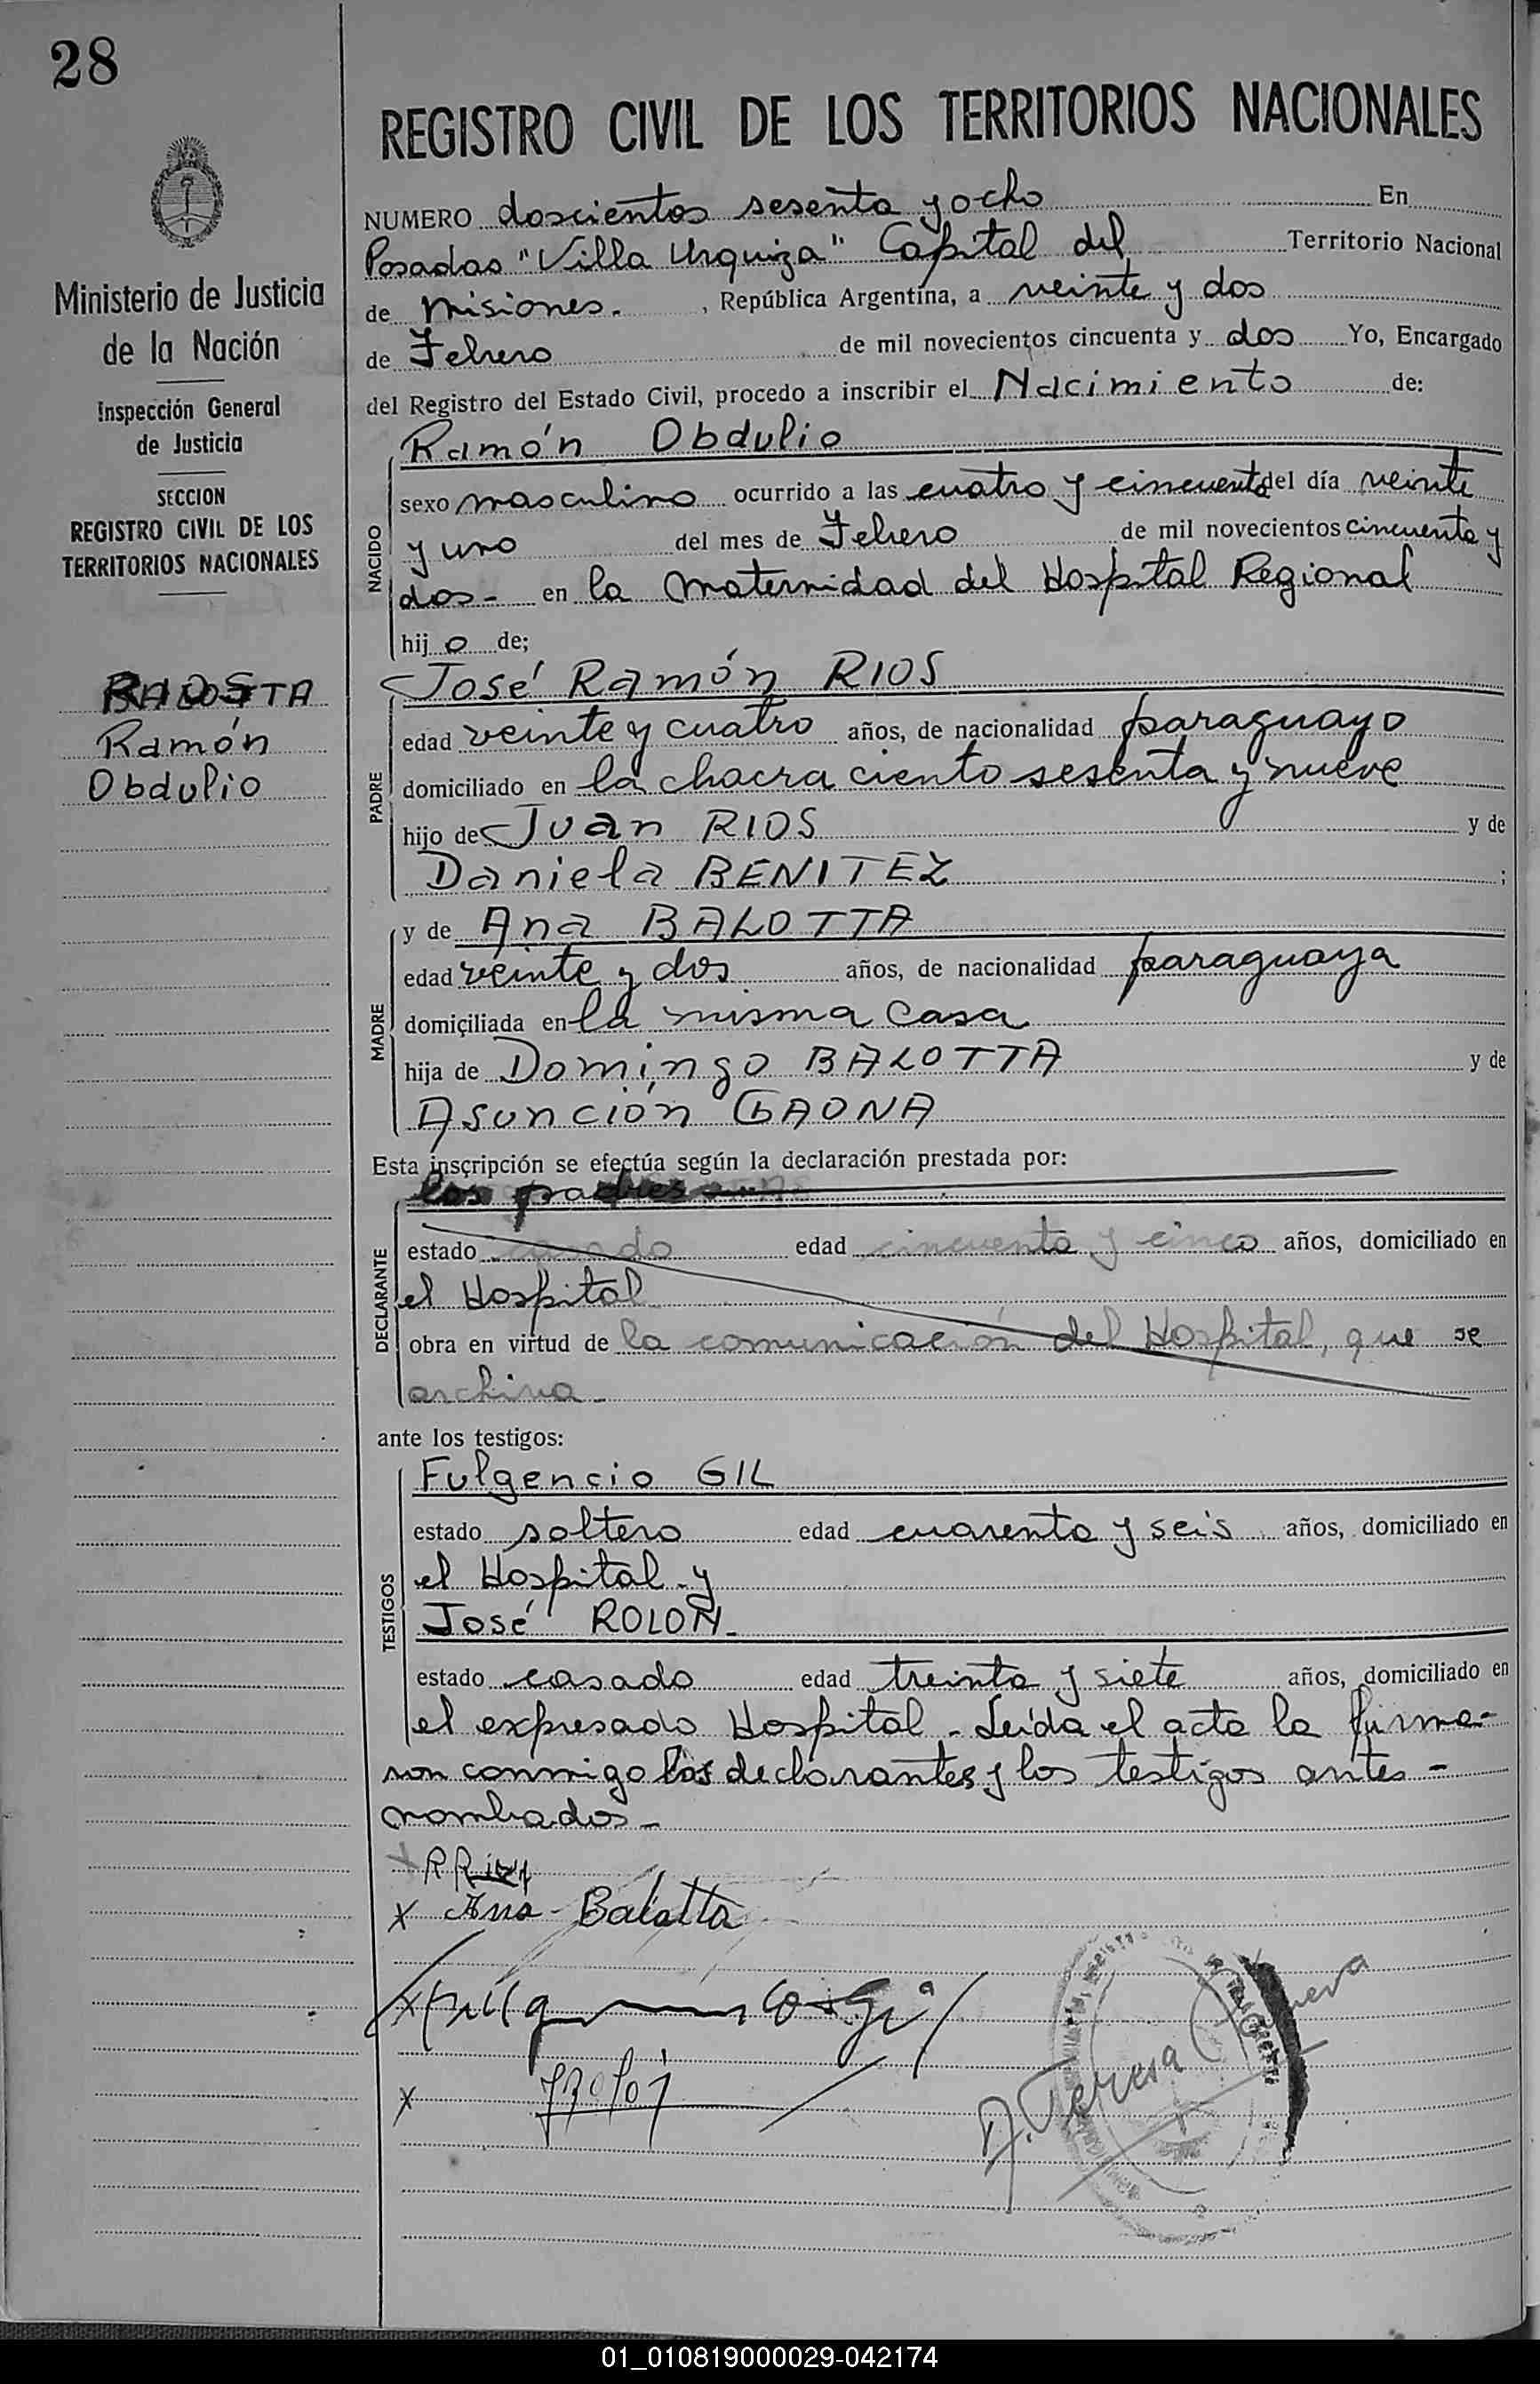 28
REGISTRO CIVIL DE LOS TERRITORIOS NACIONALES
NUMERO doscientos sesenta y ocho En
Posadas "Villa Urquiza" Capital del Territorio Nacional
de Misiones. , República Argentina, a veinte y dos
de Febrero de mil novecientos cincuenta y dos Yo, Encargado
del Registro del Estado Civil, procedo a inscribir el Nacimiento de:
Ministerio de Justicia
de la Nación
Inspección General
de Justicia
SECCION
REGISTRO CIVIL DE LOS
TERRITORIOS NACIONALES
Ramón
Obdulio
NACIDO
Ramón Obdulio
sexo masculino ocurrido a las cuatro y cincuenta del día veinte
y uno del mes de Febrero de mil novecientos cincuenta y
dos- en la Maternidad del Hospital Regional
hijo de;
PADRE
José Ramón RIOS
edad veinte y cuatro años, de nacionalidad paraguayo
domiciliado en la chacra ciento sesenta y nueve
hijo de Juan RIOS y de
Daniela BENITEZ ;
MADRE
y de Ana BALOTTA
edad veinte y dos años, de nacionalidad paraguaya
domiciliada en la misma casa
hija de Domingo BALOTTA y de
Asunción GAONA
Esta inscripción se efectúa según la declaración prestada por:
DECLARANTE
los padres
estado casado edad cincuenta y cinco años, domiciliado en
el Hospital
obra en virtud de la comunicación del Hospital, que se
archiva-
ante los testigos:
TESTIGOS
Fulgencio GIL
estado soltero edad cuarenta y seis años, domiciliado en
el Hospital y
José ROLON-
estado casado edad treinta y siete años, domiciliado en
el expresado Hospital - Leída el acta la firma-
ron conmigo los declarantes y los testigos antes-
nombrados-
x
x Ana Balotta
x
x
Teresa
01_010819000029-042174